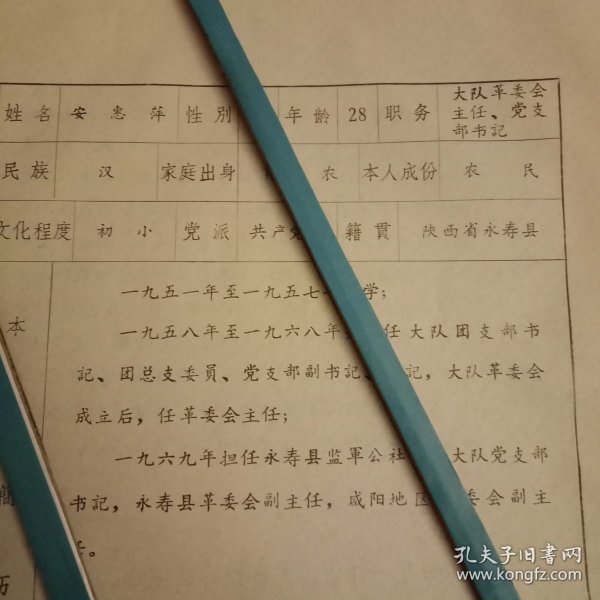 姓名 安惠萍 性别 年龄 28 职务 大队革委会
主任、党支
部书記
民族 汉 家庭出身 农 本人成份 农民
文化程度 初小 党派 共产党 籍貫 陕西省永寿县
本
一九五一年至一九五七 学;
一九五八年至一九六八年 任大队团支部书
記、团总支委員、党支部副书記、 記，大队革委会
成立后，任革委会主任;
一九六九年担任永寿县监軍公社 大队党支部
书記，永寿县革委会副主任，咸阳地区 委会副主
。
历
孔夫子旧书网
www.kongfz.com